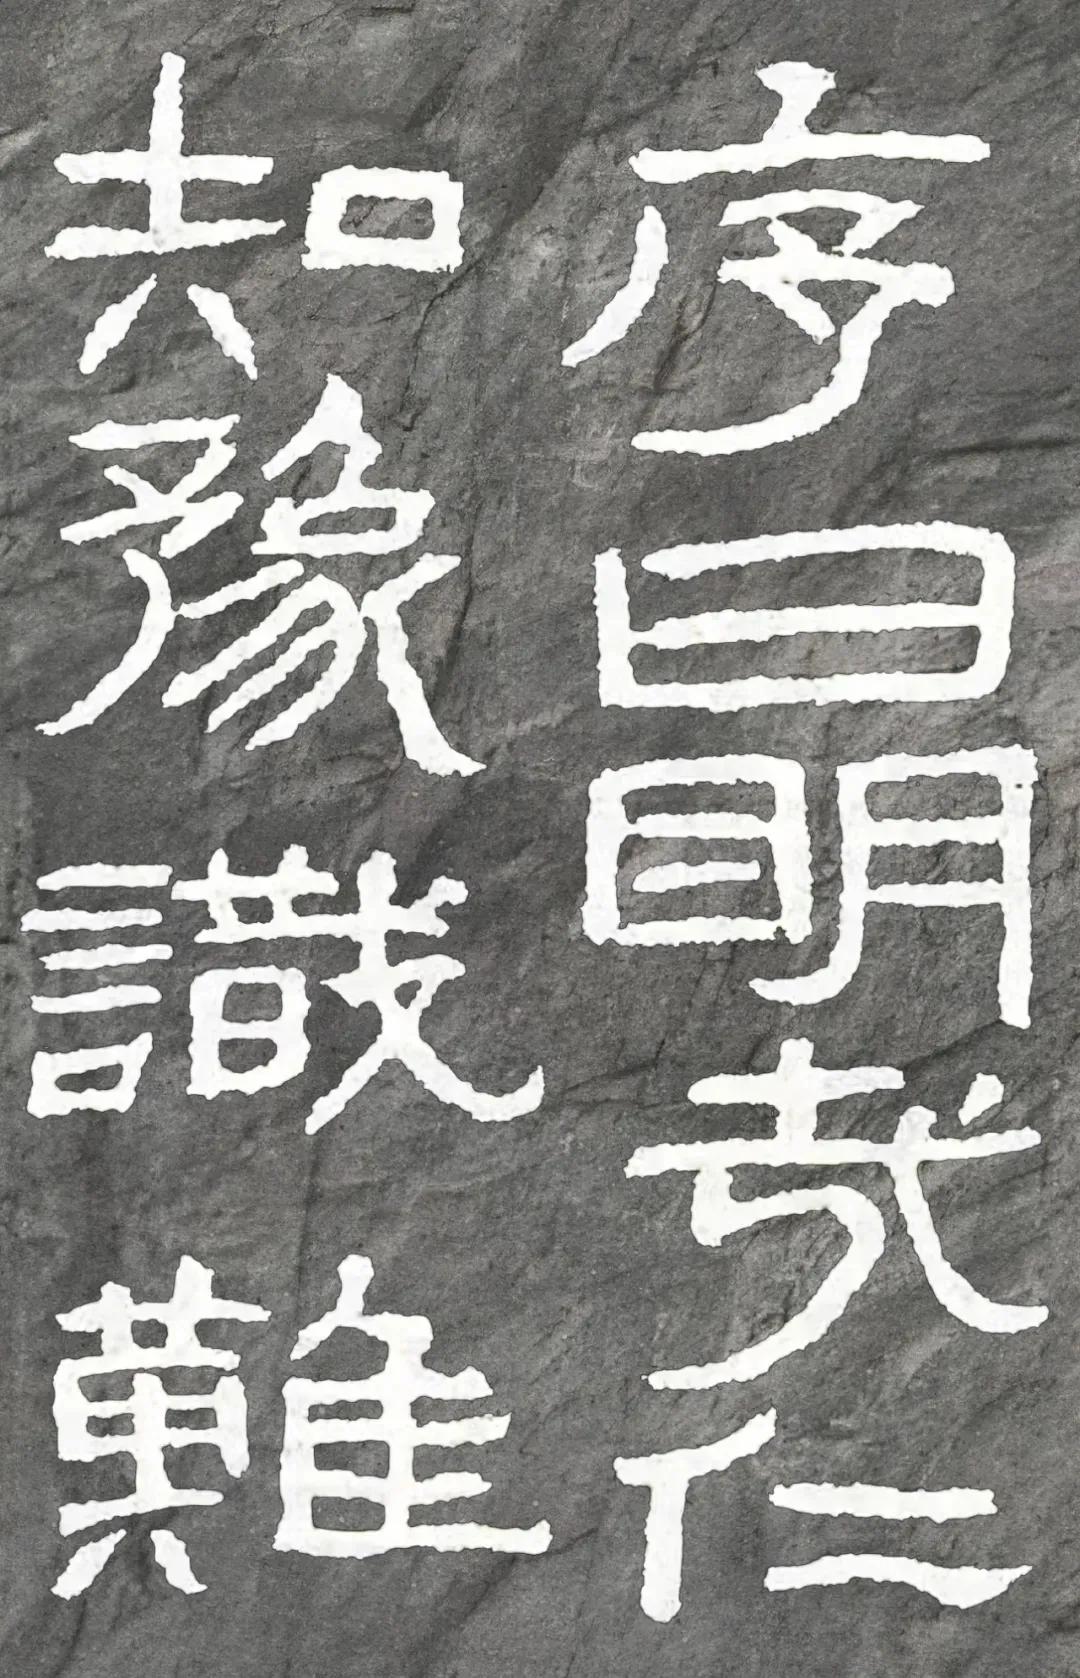 序曰明哉仁
知豫識難